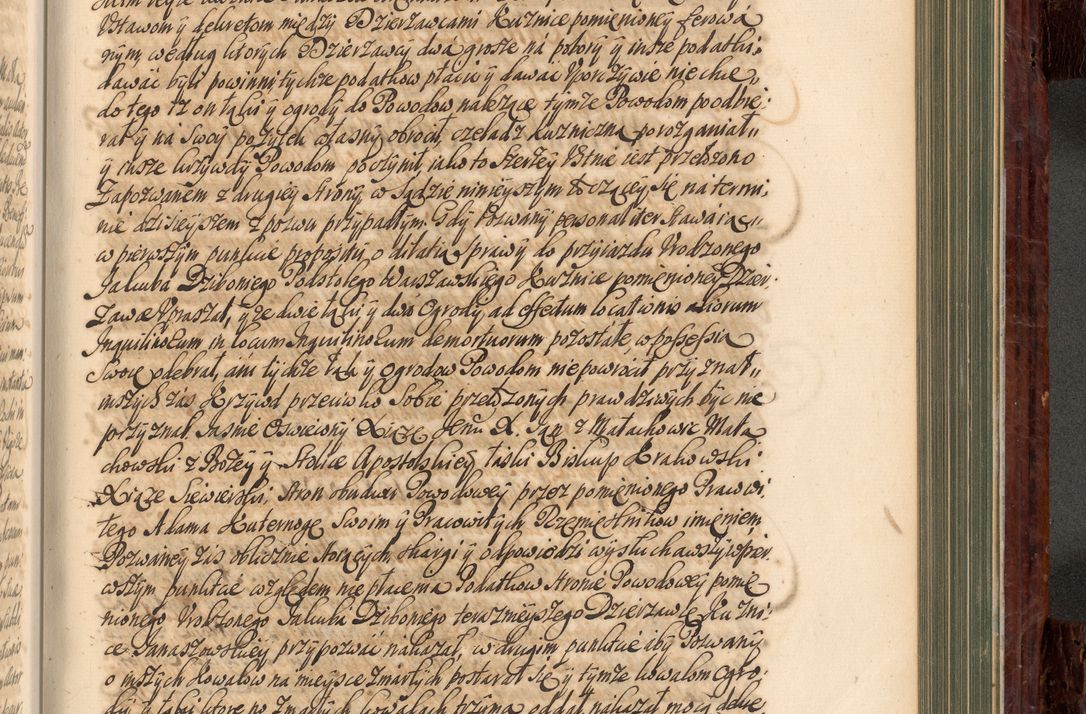 Ustawom y dekretom między Dzierzawcami Kuźnice pomienioney ferowa
nym według ktorych Dzierzawcy dwa grosze na pobory y insze podatki
dawać byli powinni tychze podatkow płacić y dawać Uporczywie niechce
do tego iz on łąki y ogrody do Powodow należące tymze Powodom poodbie
rał y na swoy pożytek własny obrocił, czeladz kuzniczną porozganiał
y insze krzywdy Powodom poczynił, iako to szerzey Ustnie iest przełozono
Zapozwanem z drugiey strony, w sądzie ninieyszym toczącey się na termi
nie dzisieyszem z pozwu przypadłym. Gdy Pozwany personaliter stawaiąc
w pierwszym punkcie propozycyi, o dilatią sprawy do przyiazdu Urodzonego
Jakuba Dziboniego Podstolego Warszawskiego Kuźnice pomienioney Dzier
zawce Upraszał, y że dwie łąki y dwa Ogrody, ad effectum locationis aliorum
Inquilinorum in locum Inquilinorum demortuorum pozostałe, w possessią
swoię odebrał, ani tychze łąk y ogrodow Powodom niepowrocił przyznał
inszych zas Krzywd przeciwko sobie przełozonych prawdziwych być nie
przyznał. Jasnie Oswiecony Xiąże Jeнu X. Jan z Małachowic Mała
chowski z Bozey y Stolice Apostolskiey łaski Biskup Krakowski
Xiąze Siewierski. Stron obudwu Powodowey przez pomienionego Pracowi
tego Adama Kuternogę swoim y Pracowitych Rzemieslnikow imieniem
Pozwaney zas oblicznie stoiących, skargi y odpowiedzi wysłuchawszy w pier
wszym punkcie względem niepłacenia Podatkow stronie Powodowey pomie
nionego Urodzonego Jakuba Dziboniego terazniejszego Dzierzawcę Kuzni
ce Panaszowskiey przypozwać nakazał, w drugim punkcie aby Pozwany
o inszych Kowalow na mieysce zmarłych postarał się y tymze kowalom ogro
dy y łąki ktore po zmarłych kowalach trzyma oddał nakazał mocą dekre